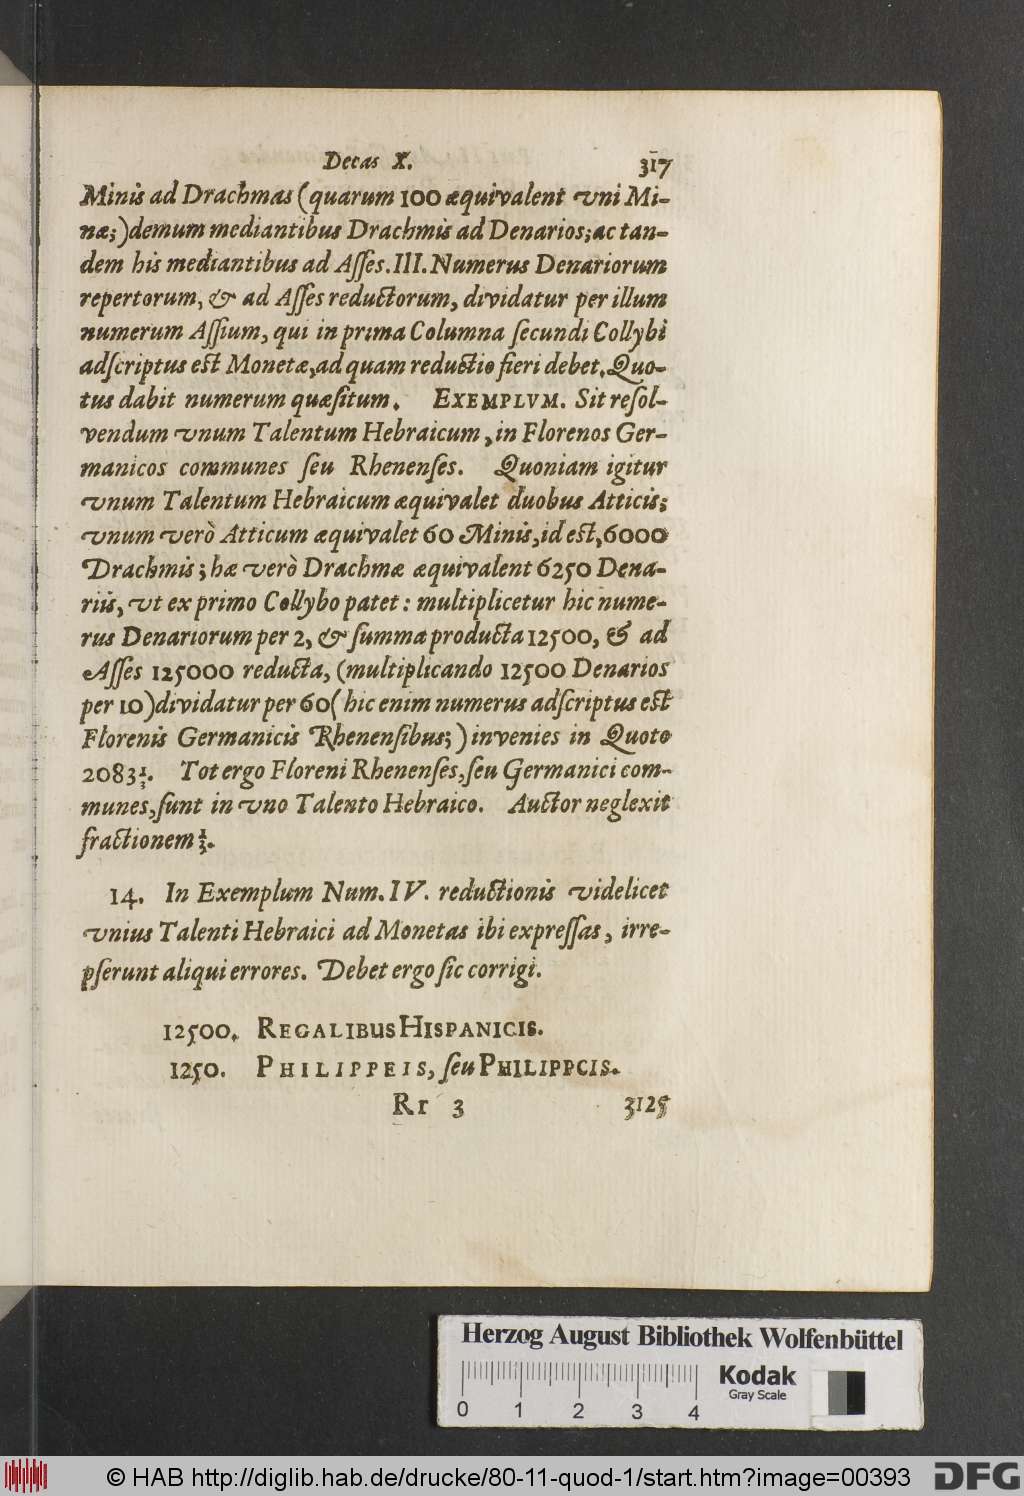 Decas X. 317
Minis ad Drachmas (quarum 100 æquivalent vni Mi-
næ;) demum mediantibus Drachmis ad Denarios; ac tan-
dem his mediantibus ad Aſſes. III. Numerus Denariorum
repertorum, & ad Aſſes reductorum, dividatur per illum
numerum Aſſium, qui in prima Columna ſecundi Collybi
adſcriptus eſt Monetæ, ad quam reductio fieri debet. Quo-
tus dabit numerum quæſitum. EXEMPLVM. Sit reſol-
vendum vnum Talentum Hebraicum, in Florenos Ger-
manicos communes ſeu Rhenenſes. Quoniam igitur
vnum Talentum Hebraicum æquivalet duobus Atticis;
vnum verò Atticum æquivalet 60 Minis, id eſt, 6000
Drachmis; hæ verò Drachmæ æquivalent 6250 Dena-
riis, vt ex primo Collybo patet: multiplicetur hic nume-
rus Denariorum per 2, & ſumma producta 12500, & ad
Aſſes 125000 reducta, (multiplicando 12500 Denarios
per 10) dividatur per 60 (hic enim numerus adſcriptus eſt
Florenis Germanicis Rhenenſibus;) invenies in Quoto
2083 1/3. Tot ergo Floreni Rhenenſes, ſeu Germanici com-
munes, ſunt in vno Talento Hebraico. Auctor neglexit
fractionem 1/3.
14. In Exemplum Num. IV. reductionis videlicet
vnius Talenti Hebraici ad Monetas ibi expreſſas, irre-
pſerunt aliqui errores. Debet ergo ſic corrigi.
12500. REGALIBUS HISPANICIS.
1250. PHILIPPEIS, ſeu PHILIPPCIS.
Rr 3 3125
Herzog August Bibliothek Wolfenbüttel
Kodak
Gray Scale
0 1 2 3 4
© HAB http://diglib.hab.de/drucke/80-11-quod-1/start.htm?image=00393 DFG